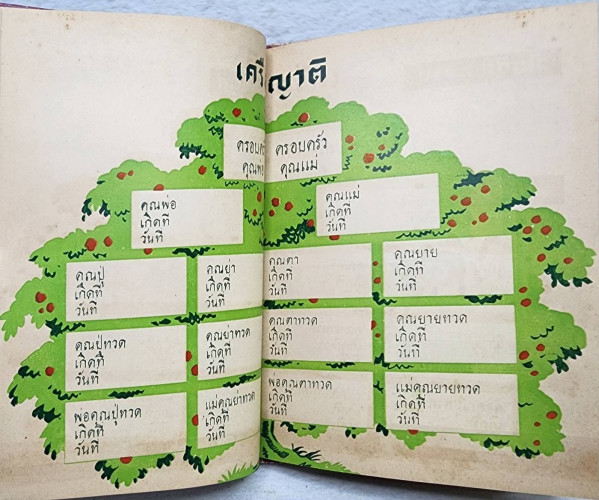 เครือญาติ
ครอบครัว
คุณพ่อ
ครอบครัว
คุณแม่
คุณพ่อ
เกิดที่
วันที่
คุณแม่
เกิดที่
วันที่
คุณปู่
เกิดที่
วันที่
คุณย่า
เกิดที่
วันที่
คุณตา
เกิดที่
วันที่
คุณยาย
เกิดที่
วันที่
คุณปู่ทวด
เกิดที่
วันที่
คุณย่าทวด
เกิดที่
วันที่
คุณตาทวด
เกิดที่
วันที่
คุณยายทวด
เกิดที่
วันที่
พ่อคุณปู่ทวด
เกิดที่
วันที่
แม่คุณย่าทวด
เกิดที่
วันที่
พ่อคุณตาทวด
เกิดที่
วันที่
แม่คุณยายทวด
เกิดที่
วันที่